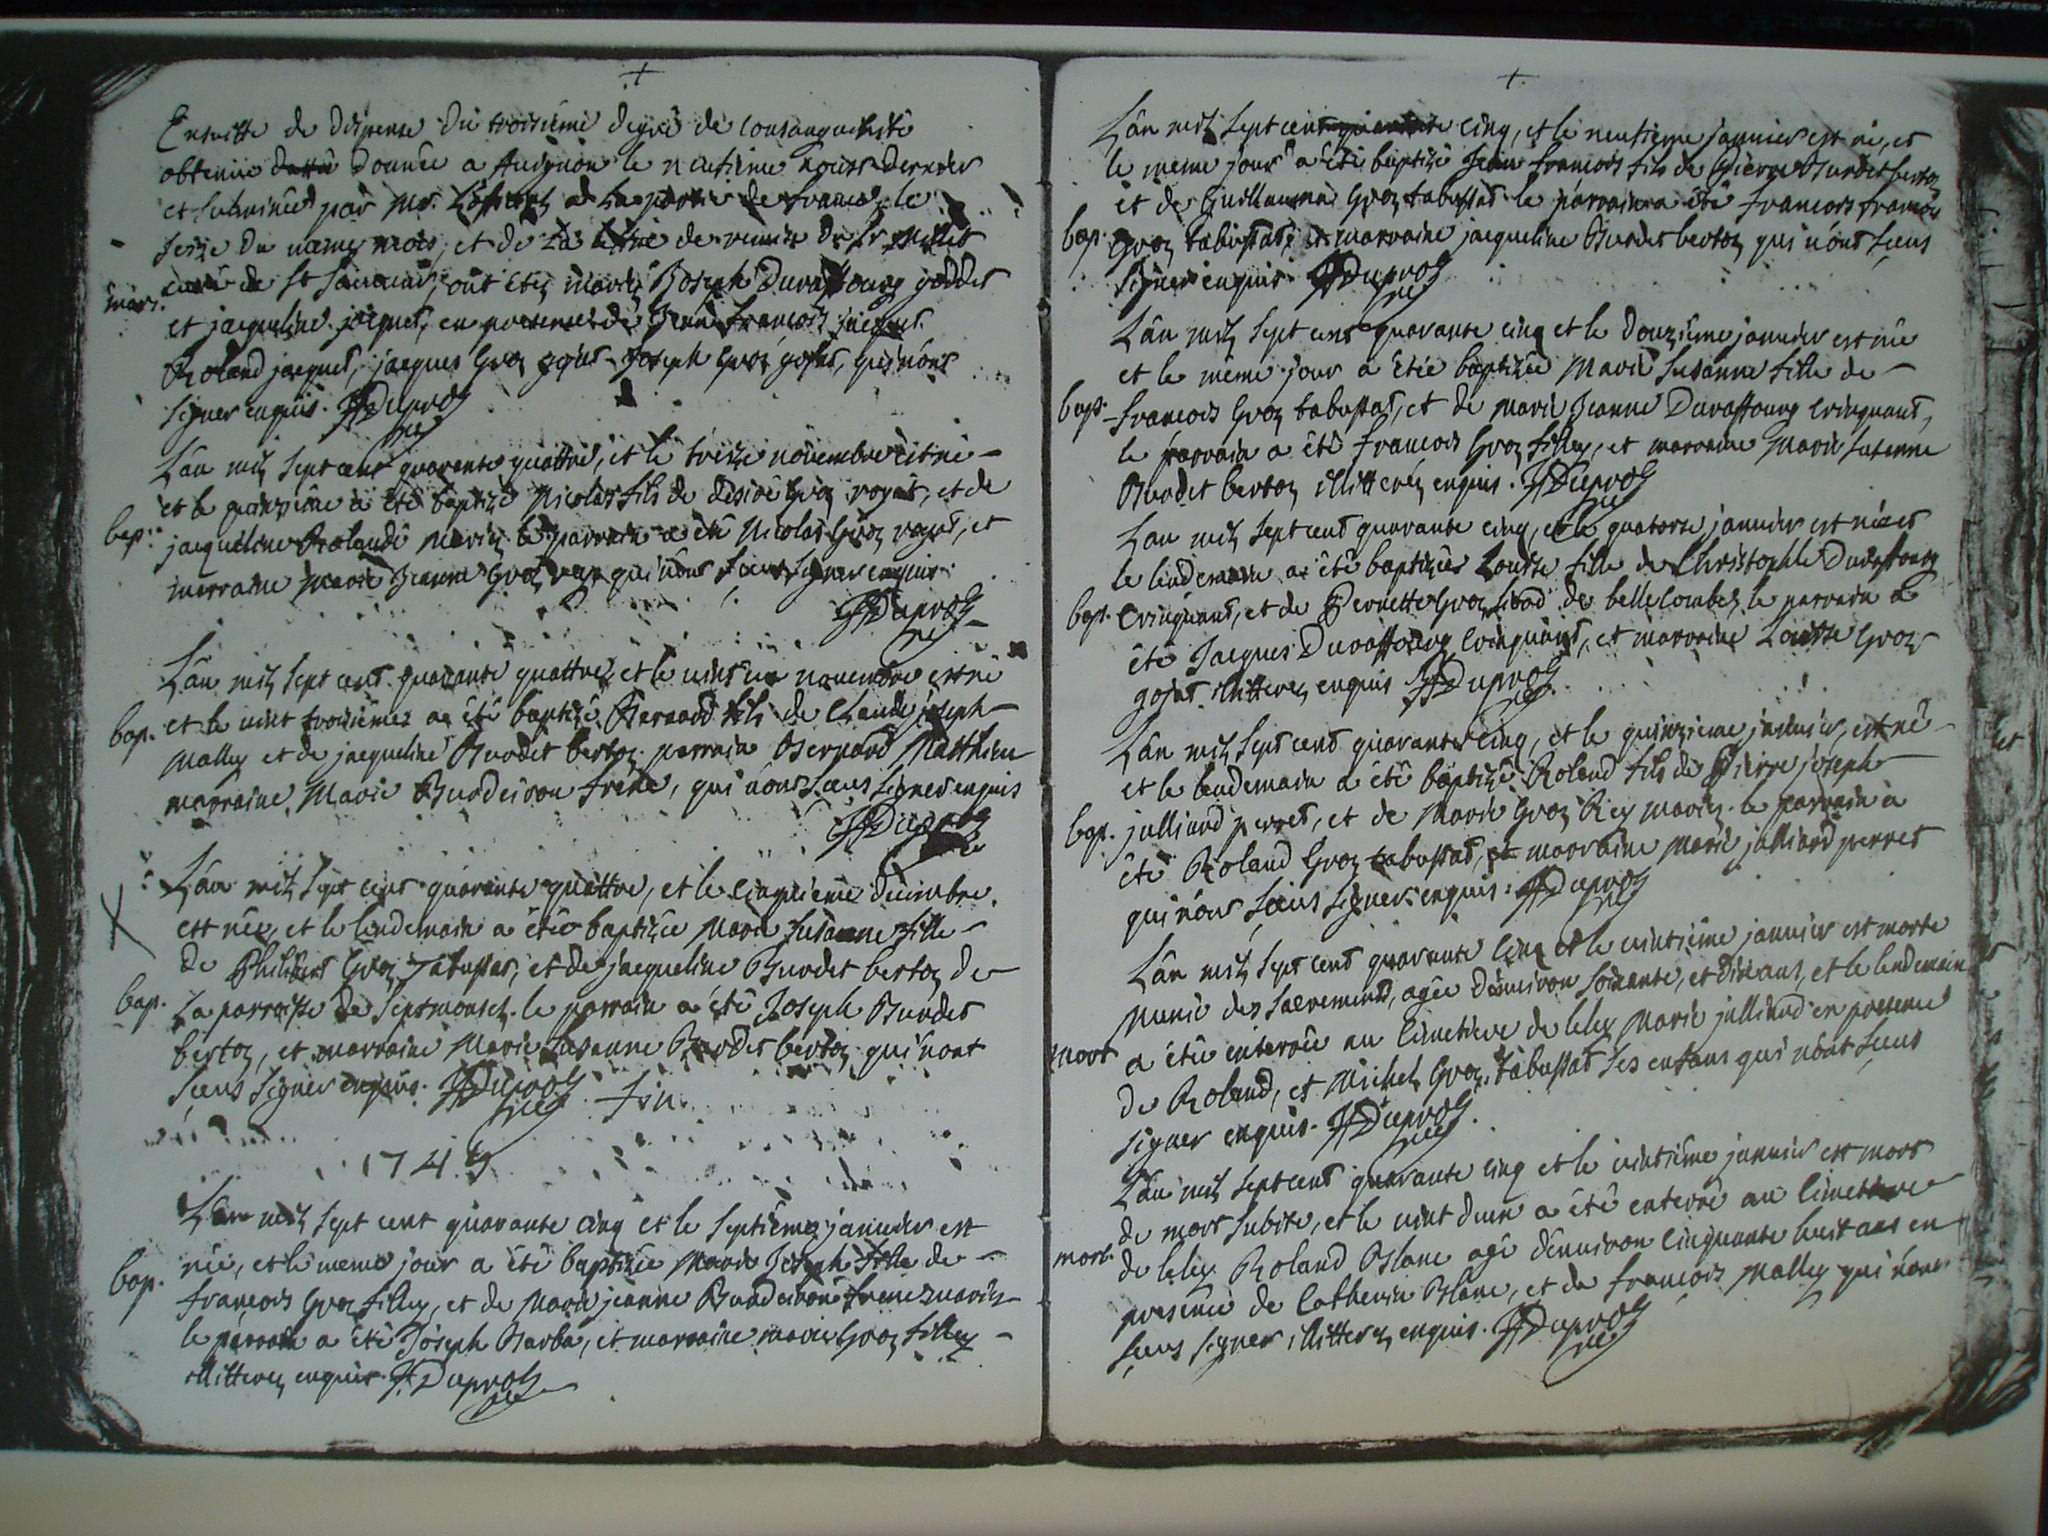 Ensuitte de dispense du troisiême degré de consanguinité
obtenue donnée a Avignon le neufième aoust dernier
et fulminée par Mr. de la partie de france le
seize du meme mois, et de la lettre de remise de Sr Millet
curé de St Sauveur, ont étés mariés Joseph Duraffourg goddet
mari.
et jacqueline jacquet, en presence de Jean francois jacquet
Roland jacquet, jacques Groz gojat Joseph Groz gojat, qui n'ont
signer enquis. Duproz
L'an mil sept cent quarente quattre, et le treize novembre est né
et le quinzième a été baptizé Nicolas fils de desiré Groz royat, et de
bap.
jacqueline Rolande mariez le parrain a été Nicolas Groz royat, et
marraine marie Jeanne Groz qui n'ont sceus signer enquis
Duproz
L'an mil sept cent quarante quattre, et le vint un novembre est né
bap. et le vint troisième a été baptizé Bernard fils de Claude joseph
Malley et de jacqueline Burdet berton. parrain Bernard Matthieu
marraine Marie Burdeiron frène, qui n'ont sceus signer enquis
Duproz
L'an mil sept cent quarante quattre, et le cinquième decembre
est née, et le lendemain a été baptizée Marie susanne fille
de Philibert Groz Tabussat, et de jacqueline Burdet berton de
bap. La parroisse de Septmoncel. le parrain a été Joseph Burdet
berton, et marraine Marie susanne Burdet berton qui n'ont
sceus signer enquis. Duproz fin
1745
L'an mil sept cent quarante cinq et le septième janvier est
née, et le meme jour a été baptizée Marie Joseph fille de
bap.
francois Groz filley, et de Marie jeanne Burdeiron frene mariés
le parrain a été Joseph Barba, et marraine marie Groz filley
illitterez enquis. Duproz
L'an mil sept cent quarante cinq, et le neufieme janvier est né, et
le meme jour a été baptizé Jean francois fils de Pierre Burdet berton
et de Guillauma Groz tabussat le parrain a été francois
bap. Groz tabussat, et marraine jacqueline Burdet berton qui n'ont sceus
signer enquis Duproz
L'an mil sept cent quarante cinq et le douzième janvier est née
et le même jour a étée baptizée Marie susanne fille de
bap. francois Groz tabussat, et de Marie Jeanne Duraffourg Cringuant,
le parrain a été francois Groz filley, et marraine Marie susanne
Burdet berton illitterez enquis. Duproz
L'an mil sept cent quarante cinq, et le quatorze janvier est née et
le lendemain a été baptizée Louise fille de Christophle Duraffourg
bap. Cringuant, et de Pernette Groz de bellecombe, le parrain a
été Jacques Duraffourg Cringuant, et marraine Louise Groz
gojat. illitterez enquis Duproz
L'an mil sept cent quarante cinq, et le quinzieme janvier, est né
et le lendemain a été baptizé Roland fils de Pierre joseph
bap. julliand perret, et de Marie Groz Rey mariez. le parrain a
été Roland Groz tabussat, et marraine Marie julliand perret
qui n'ont sceus signer enquis: Duproz
L'an mil sept cent quarante cinq et le vintième janvier est morte
munie des sacrements, agée d'environ soixante, et dix ans, et le lendemain
mort a étée enterrée au cimetiere de lelex Marie julliand en presence
de Roland, et Michel Groz Tabussat ses enfans qui n'ont sceus
signer enquis. Duproz
L'an mil sept cent quarante cinq et le vintième janvier est mort
de mort subite, et le vint d'un a été enterré au cimettiere
mort. de lelex Roland Blanc agé d'environ cinquante huit ans en
presence de Catherin Blanc, et de francois Malley qui n'ont
sceus signer illitterez enquis. Duproz